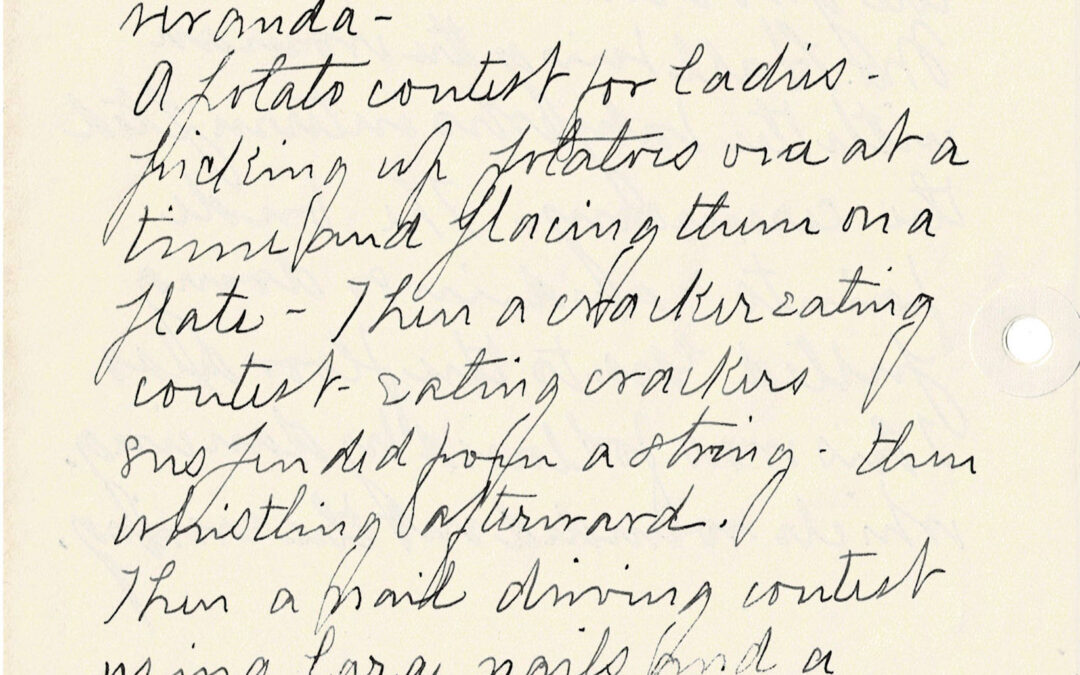 veranda -
A potato contest for ladies -
picking up potatoes one at a
time and placing them on a
plate - Then a cracker eating
contest - eating crackers
suspended from a string - then
whistling afterward.
Then a nail driving contest
using large nails and a